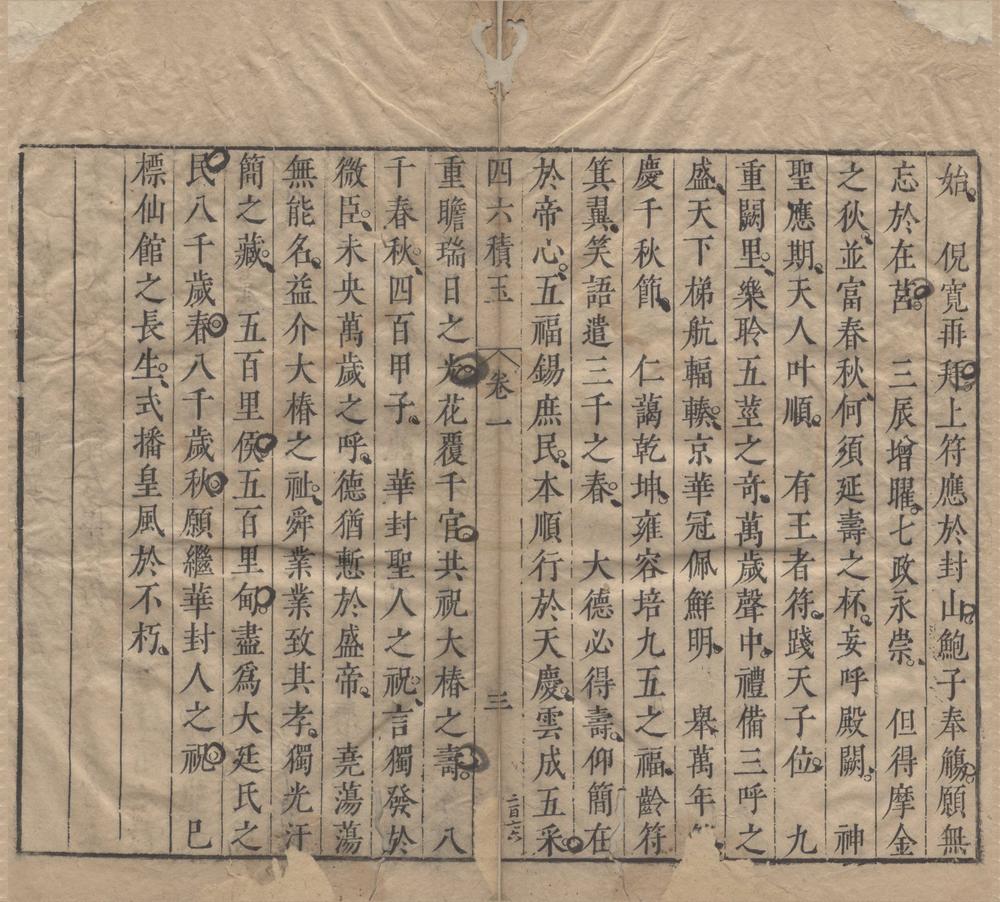 始　倪寬再拜上符應於封山鮑子奉觴願無
忘於在莒　三辰增曜七政永崇　但得摩金
之秋並富春秋何須延壽之杯妄呼殿闕　神
聖應期天人叶順　有王者符踐天子位　九
重闕里樂聆五莖之奇萬歲聲中禮備三呼之
盛天下梯航輻輳京華冠佩鮮明　舉萬年
慶千秋節　仁藹乾坤雍容培九五之福齡符
箕翼笑語遣三千之春　大德必得壽仰簡在
於帝心五福錫庶民本順行於天慶雲成五采
四六積玉　卷一　三　二百六
重瞻瑞日之光花覆千官共祝大椿之壽　八
千春秋四百甲子　華封聖人之祝言獨發於
微臣未央萬歲之呼德猶慙於盛帝　堯蕩蕩
無能名益介大椿之祉舜業業致其孝獨光汗
簡之藏　五百里侯五百里甸盡爲大廷氏之
民八千歲春八千歲秋願繼華封人之祝　已
標仙館之長生式播皇風於不朽